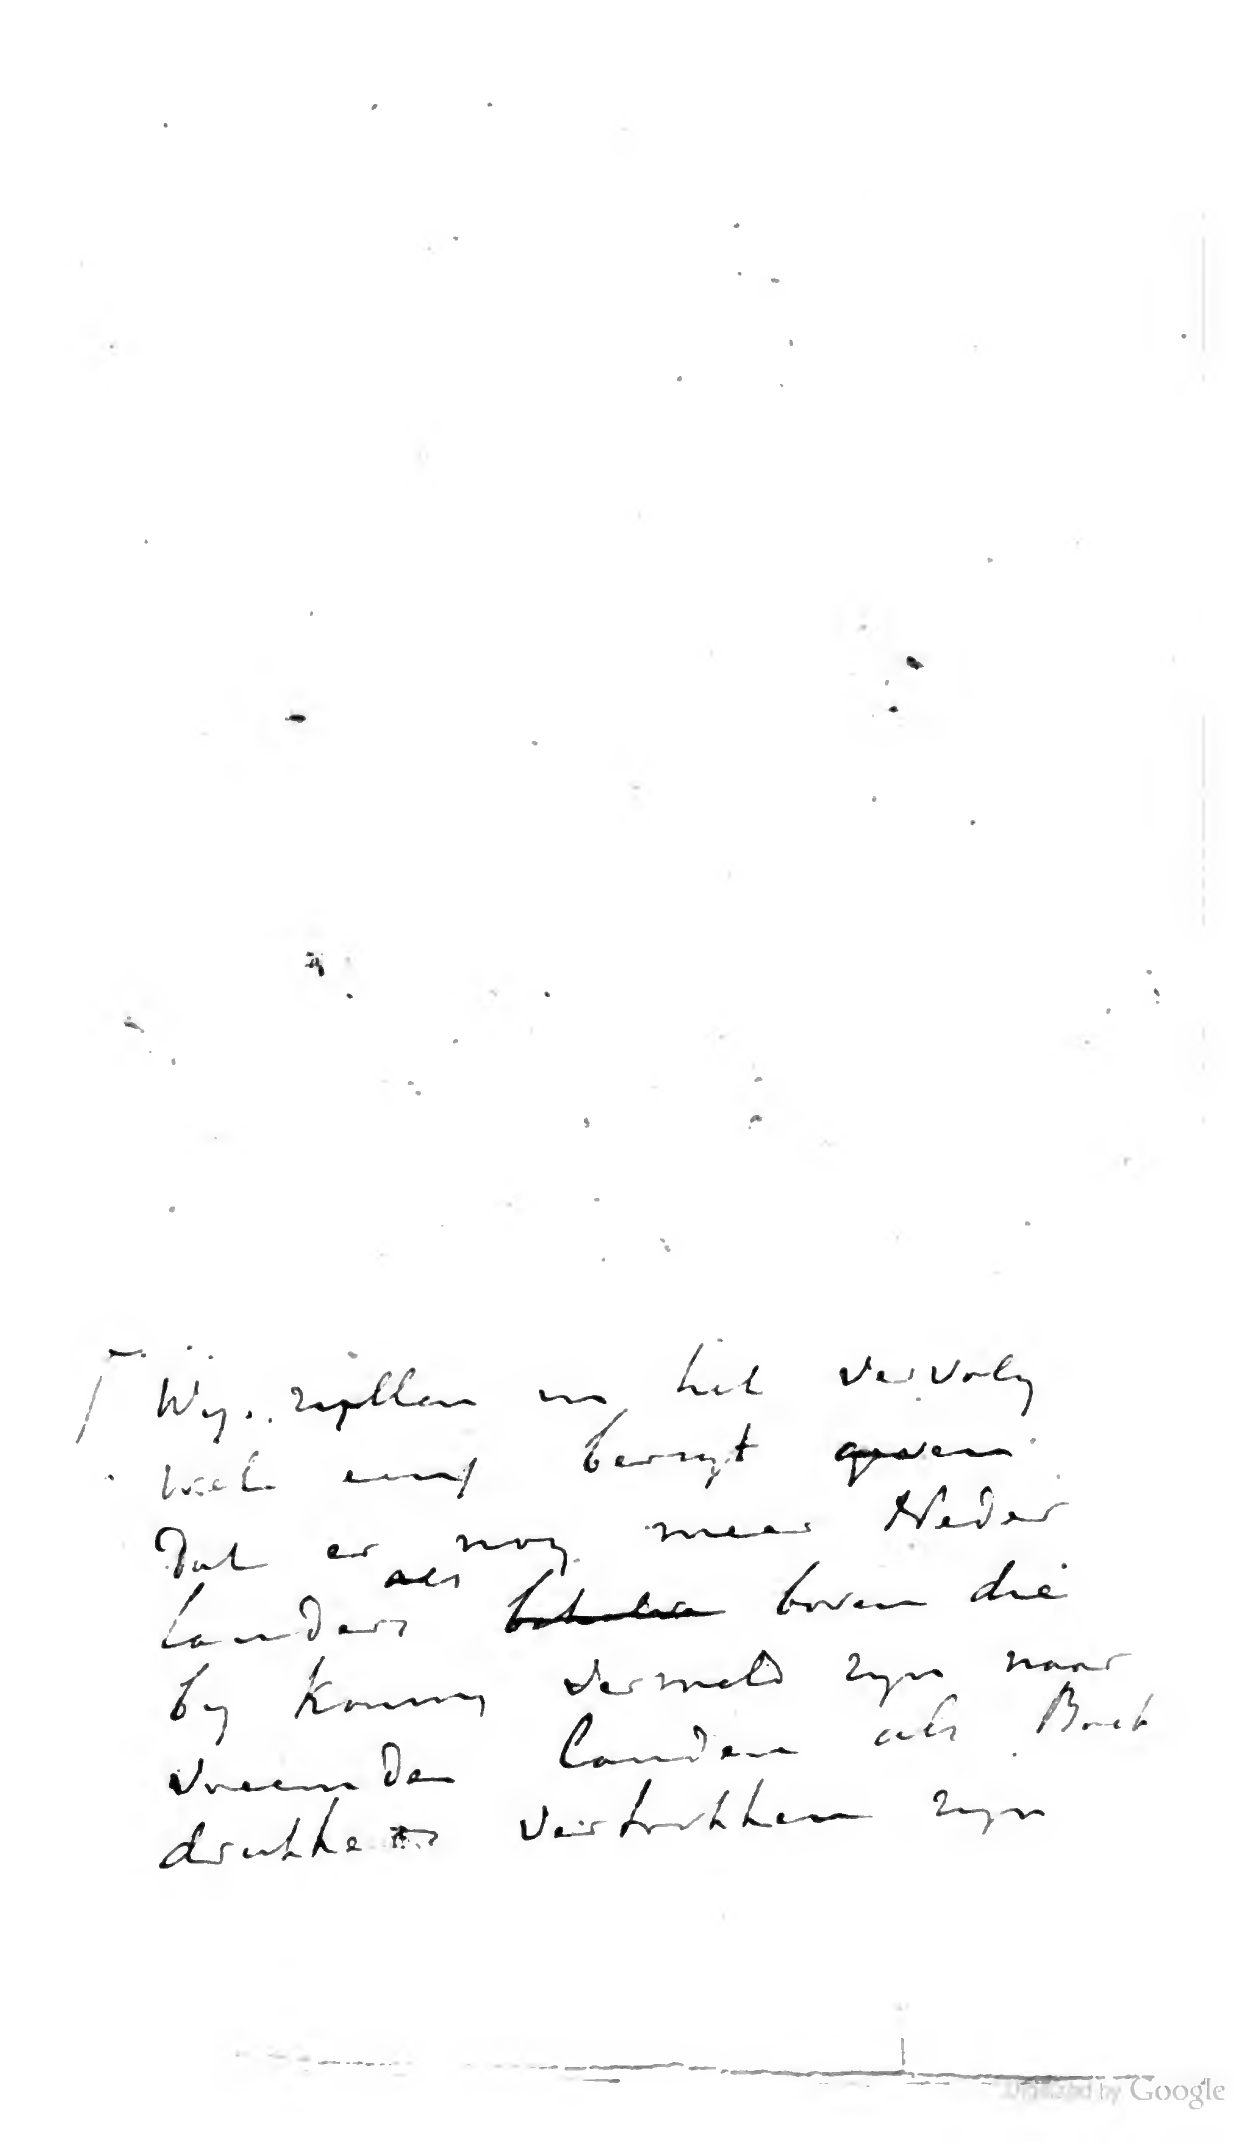 Wy zullen in het vervolg
wel eens berigt geven
Dat er nog meer Neder
landers als boven die
by koning vermeld zyn naar
vreemden landen als Boek
drukkers vertrokken zyn
Digitized by Google